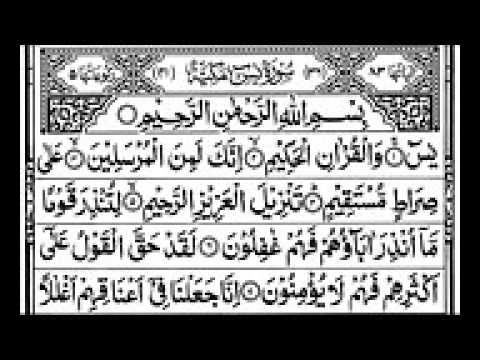 اٰیاتہا ٨٣ (٣٦) سُوْرَةُ يٰسٓ مَكِّيَّةٌ (٤١) رکوعاتہا ٥
بِسْمِ اللّٰهِ الرَّحْمٰنِ الرَّحِيْمِ ○
يٰسٓ ۝١ وَالْقُرْاٰنِ الْحَكِيْمِ ۝٢ اِنَّكَ لَمِنَ الْمُرْسَلِيْنَ ۝٣ عَلٰى
صِرَاطٍ مُّسْتَقِيْمٍ ۝٤ تَنْزِيْلَ الْعَزِيْزِ الرَّحِيْمِ ۝٥ لِتُنْذِرَ قَوْمًا
مَّاۤ اُنْذِرَ اٰبَآؤُهُمْ فَهُمْ غٰفِلُوْنَ ۝٦ لَقَدْ حَقَّ الْقَوْلُ عَلٰۤى
اَكْثَرِهِمْ فَهُمْ لَا يُؤْمِنُوْنَ ۝٧ اِنَّا جَعَلْنَا فِيْۤ اَعْنَاقِهِمْ اَغْلٰلًا